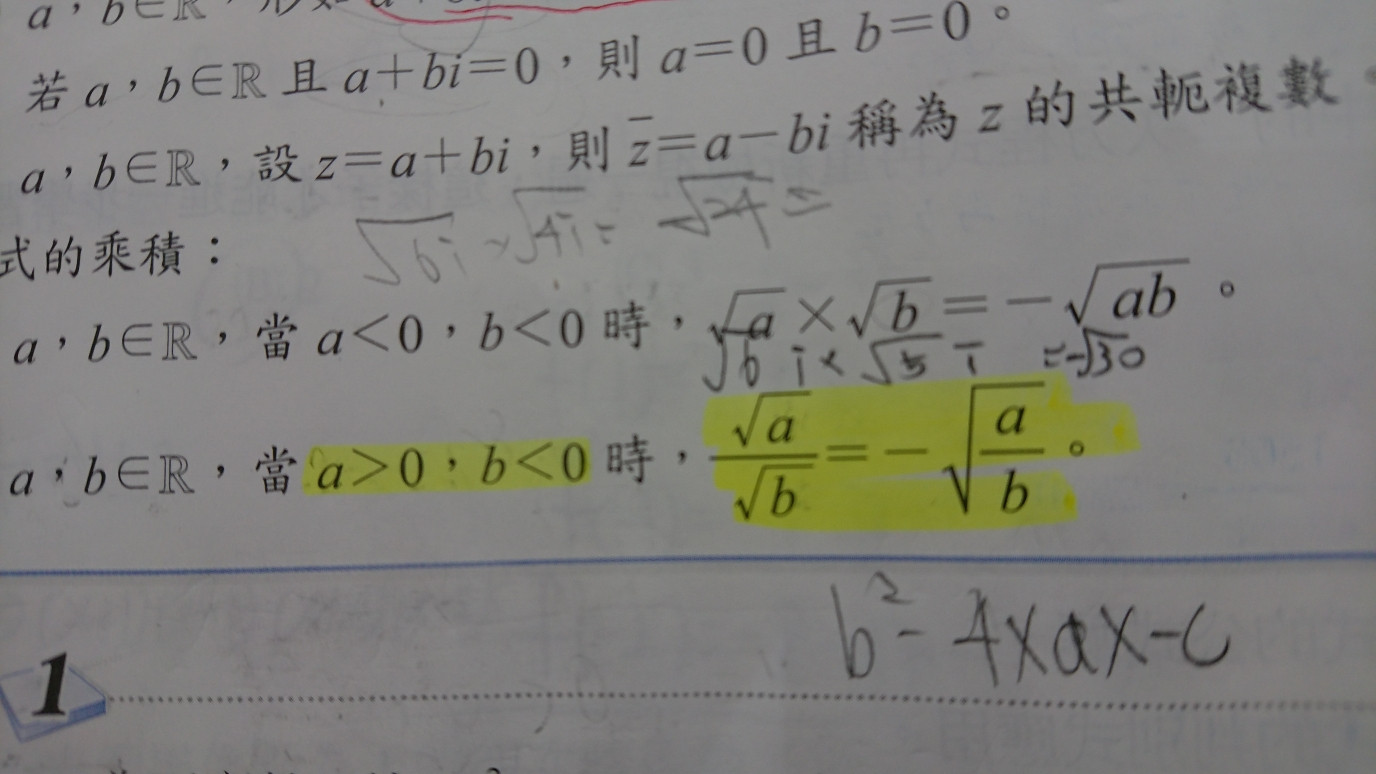 a，b∈ℝ，形如
若 a，b∈ℝ 且 a+bi=0，則 a=0 且 b=0。
a，b∈ℝ，設 z=a+bi，則 z̄=a−bi 稱為 z 的共軛複數。
√6i ×√4i = √24 =
式的乘積：
a，b∈ℝ，當 a<0，b<0 時，√a×√b=−√ab。
√6 i × √5 i =-√30
a，b∈ℝ，當 a>0，b<0 時，√a/√b=−√(a/b)。
b²-4×a×-c
1